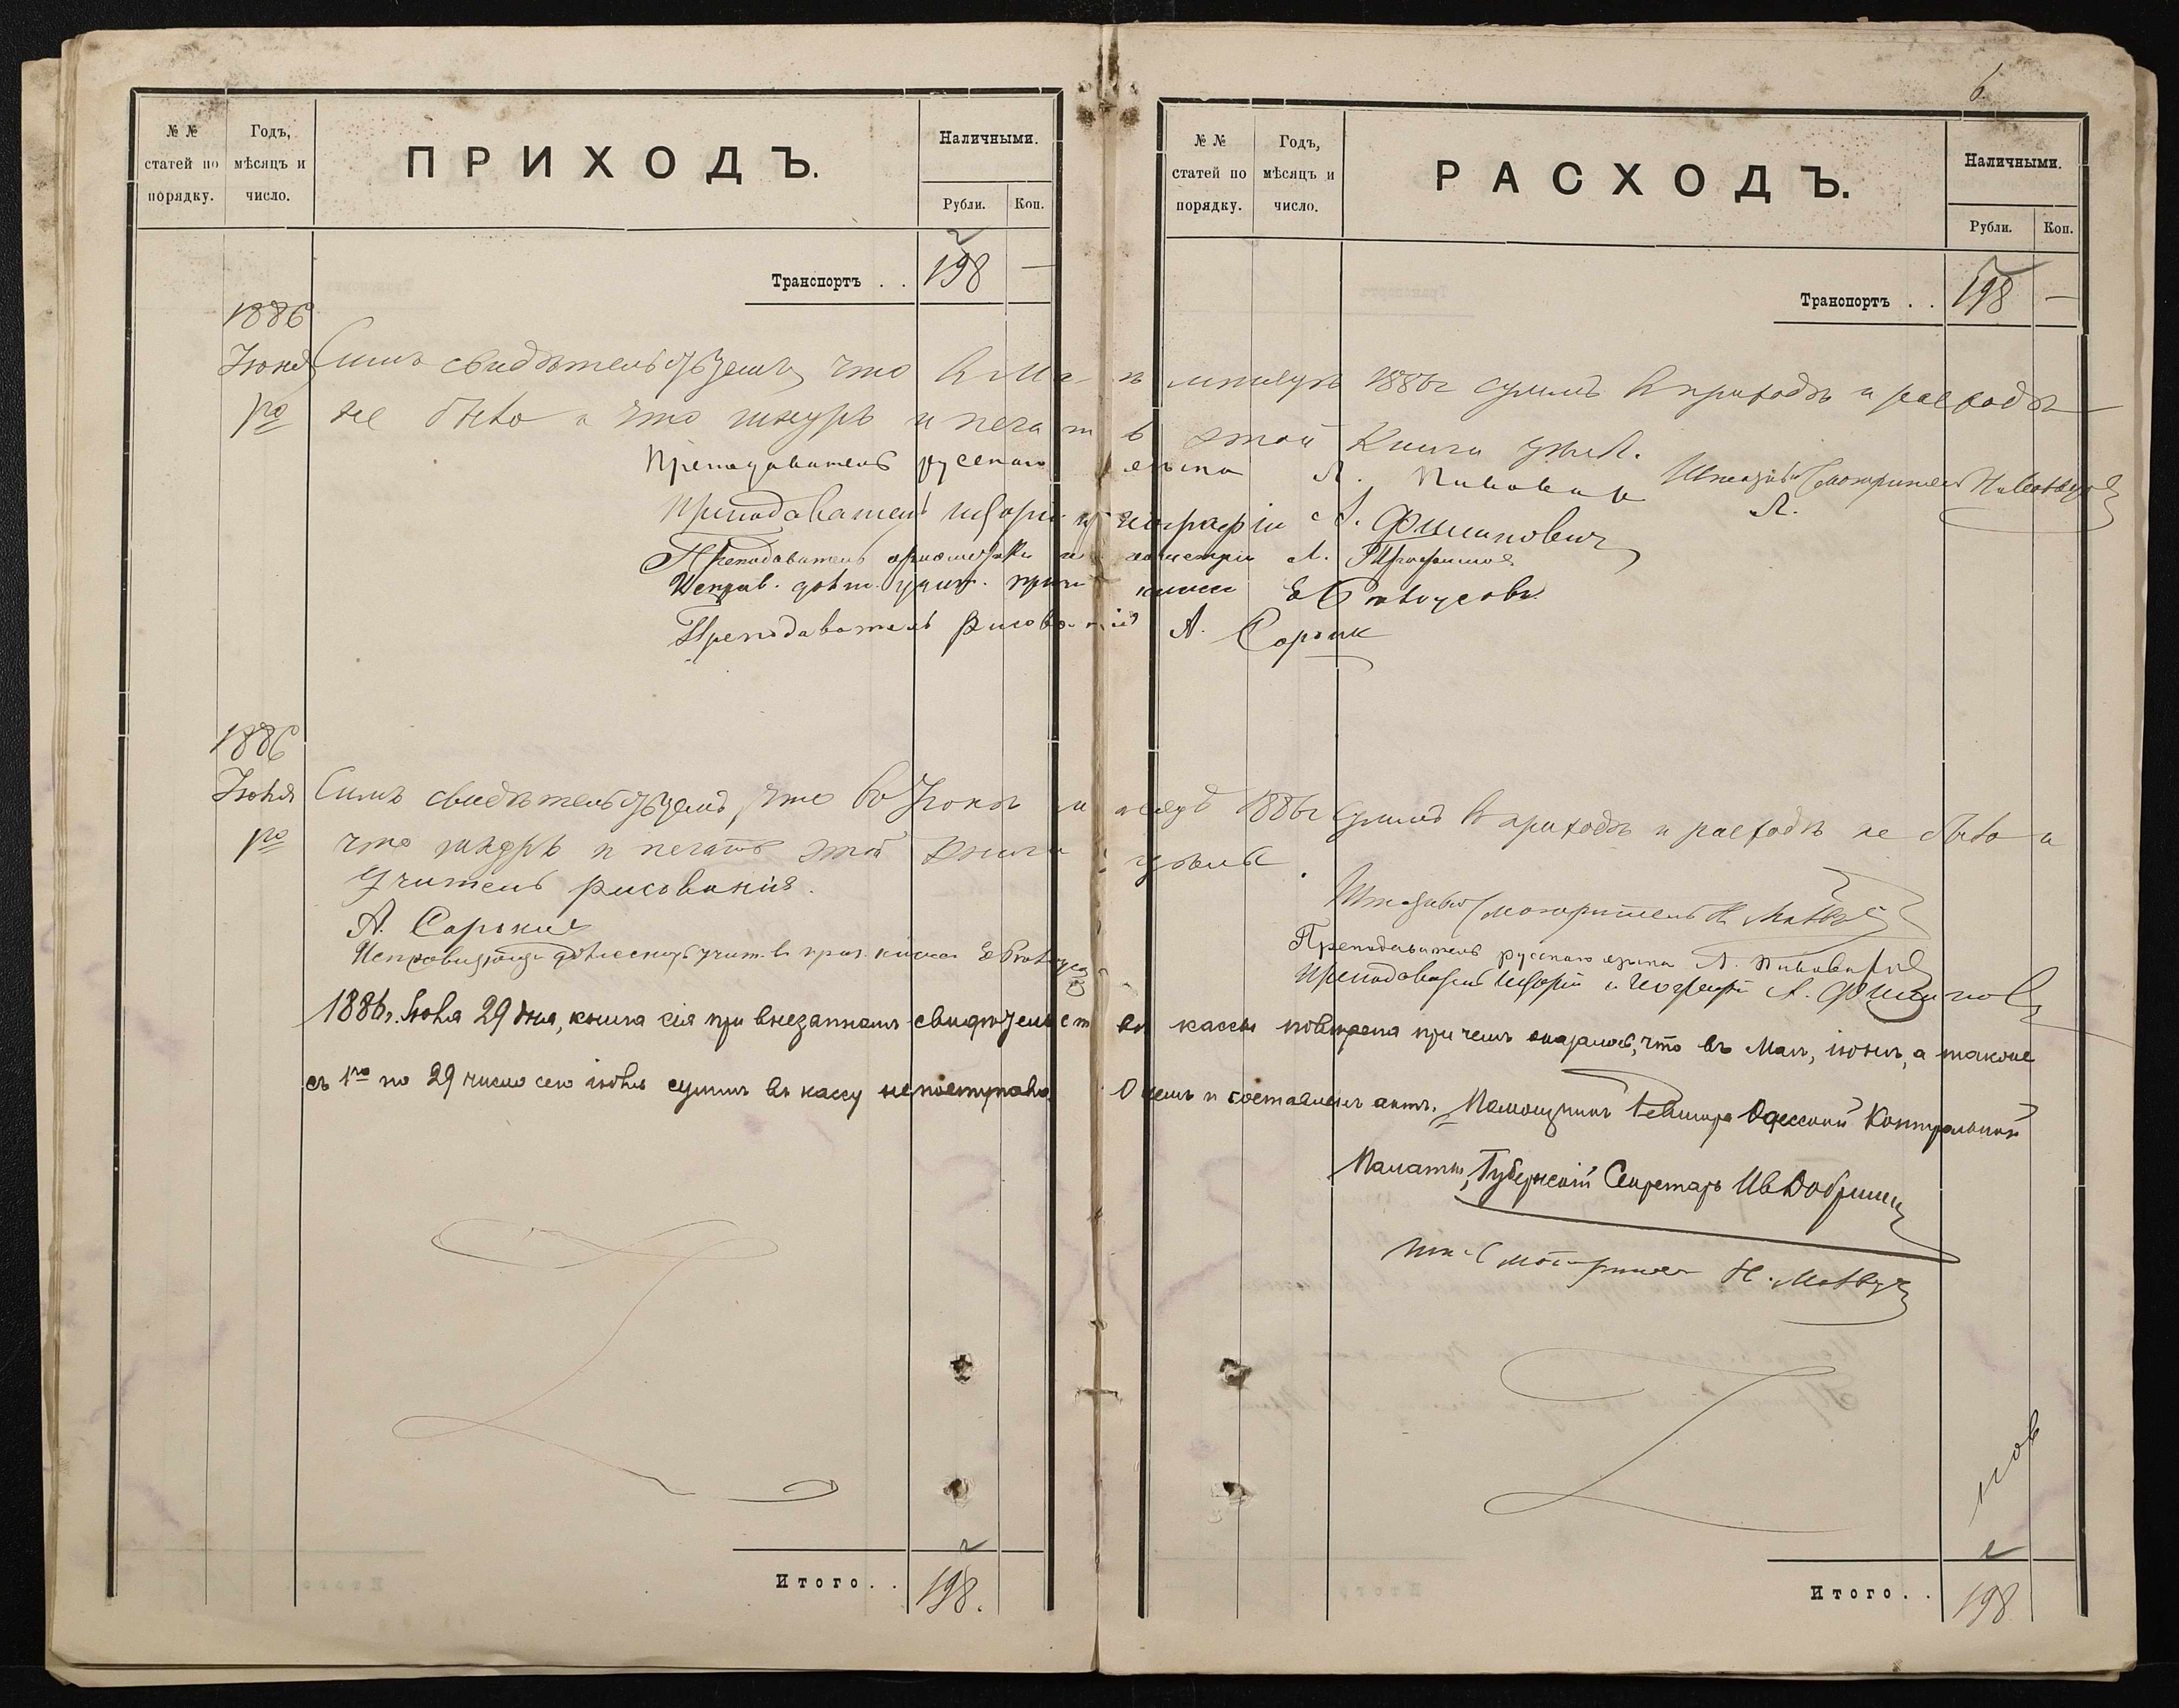 6.
№ № статей по порядку.
Годъ, мѣсяцъ и число.
ПРИХОДЪ.
Наличными.
Рубли. Коп.
№ № статей по порядку.
Годъ, мѣсяцъ и число.
РАСХОДЪ.
Наличными.
Рубли. Коп.
Транспортъ . . 198 —
Транспортъ . . 198 —
1886
Июня Симъ свидѣтельствуемъ, что в Маѣ мѣсяцѣ 1886 г суммъ в приходѣ и расходѣ
1го не было и что шнуръ и печать этой Книги цѣлы.
Преподаватель русскаго языка А. Пивоваровъ
Штатный Смотритель Н. Матвѣев
Преподаватель исторіи и географіи А. Филипович
Преподаватель ариѳметики и геометріи А.
Исправ. долж. учит. приг. класса Е
Преподаватель рисованія А. Сорокин
1886
Июля Симъ свидѣтельствуемъ, что во Июнѣ мѣсяцѣ 1886 г суммъ в приходѣ и расходѣ не было и
1го что шнуръ и печать этой Книги цѣлы.
Учитель рисованія.
А. Сорокин
Штатный Смотритель Н. Матвѣев
Исправляющій должность учит. приг. класса Е
Преподаватель русскаго языка А. Пивоваров
Преподаватель исторіи и географіи А. Филипович
1886 г. Іюля 29 дня, книга сія при внезапномъ свидѣтельствѣ кассы повѣрена при чемъ оказалось, что въ Маѣ, іюнѣ, а также
съ 1го по 29 число сего іюля суммъ въ кассу не поступало. О чемъ и составленъ актъ. Помощникъ Ревизора Одесской Контрольной
Палаты, Губернскій Секретарь Ив Добрынин
Шт. Смотритель Н. Матвѣев
Итого . . 198.
Итого . . 198